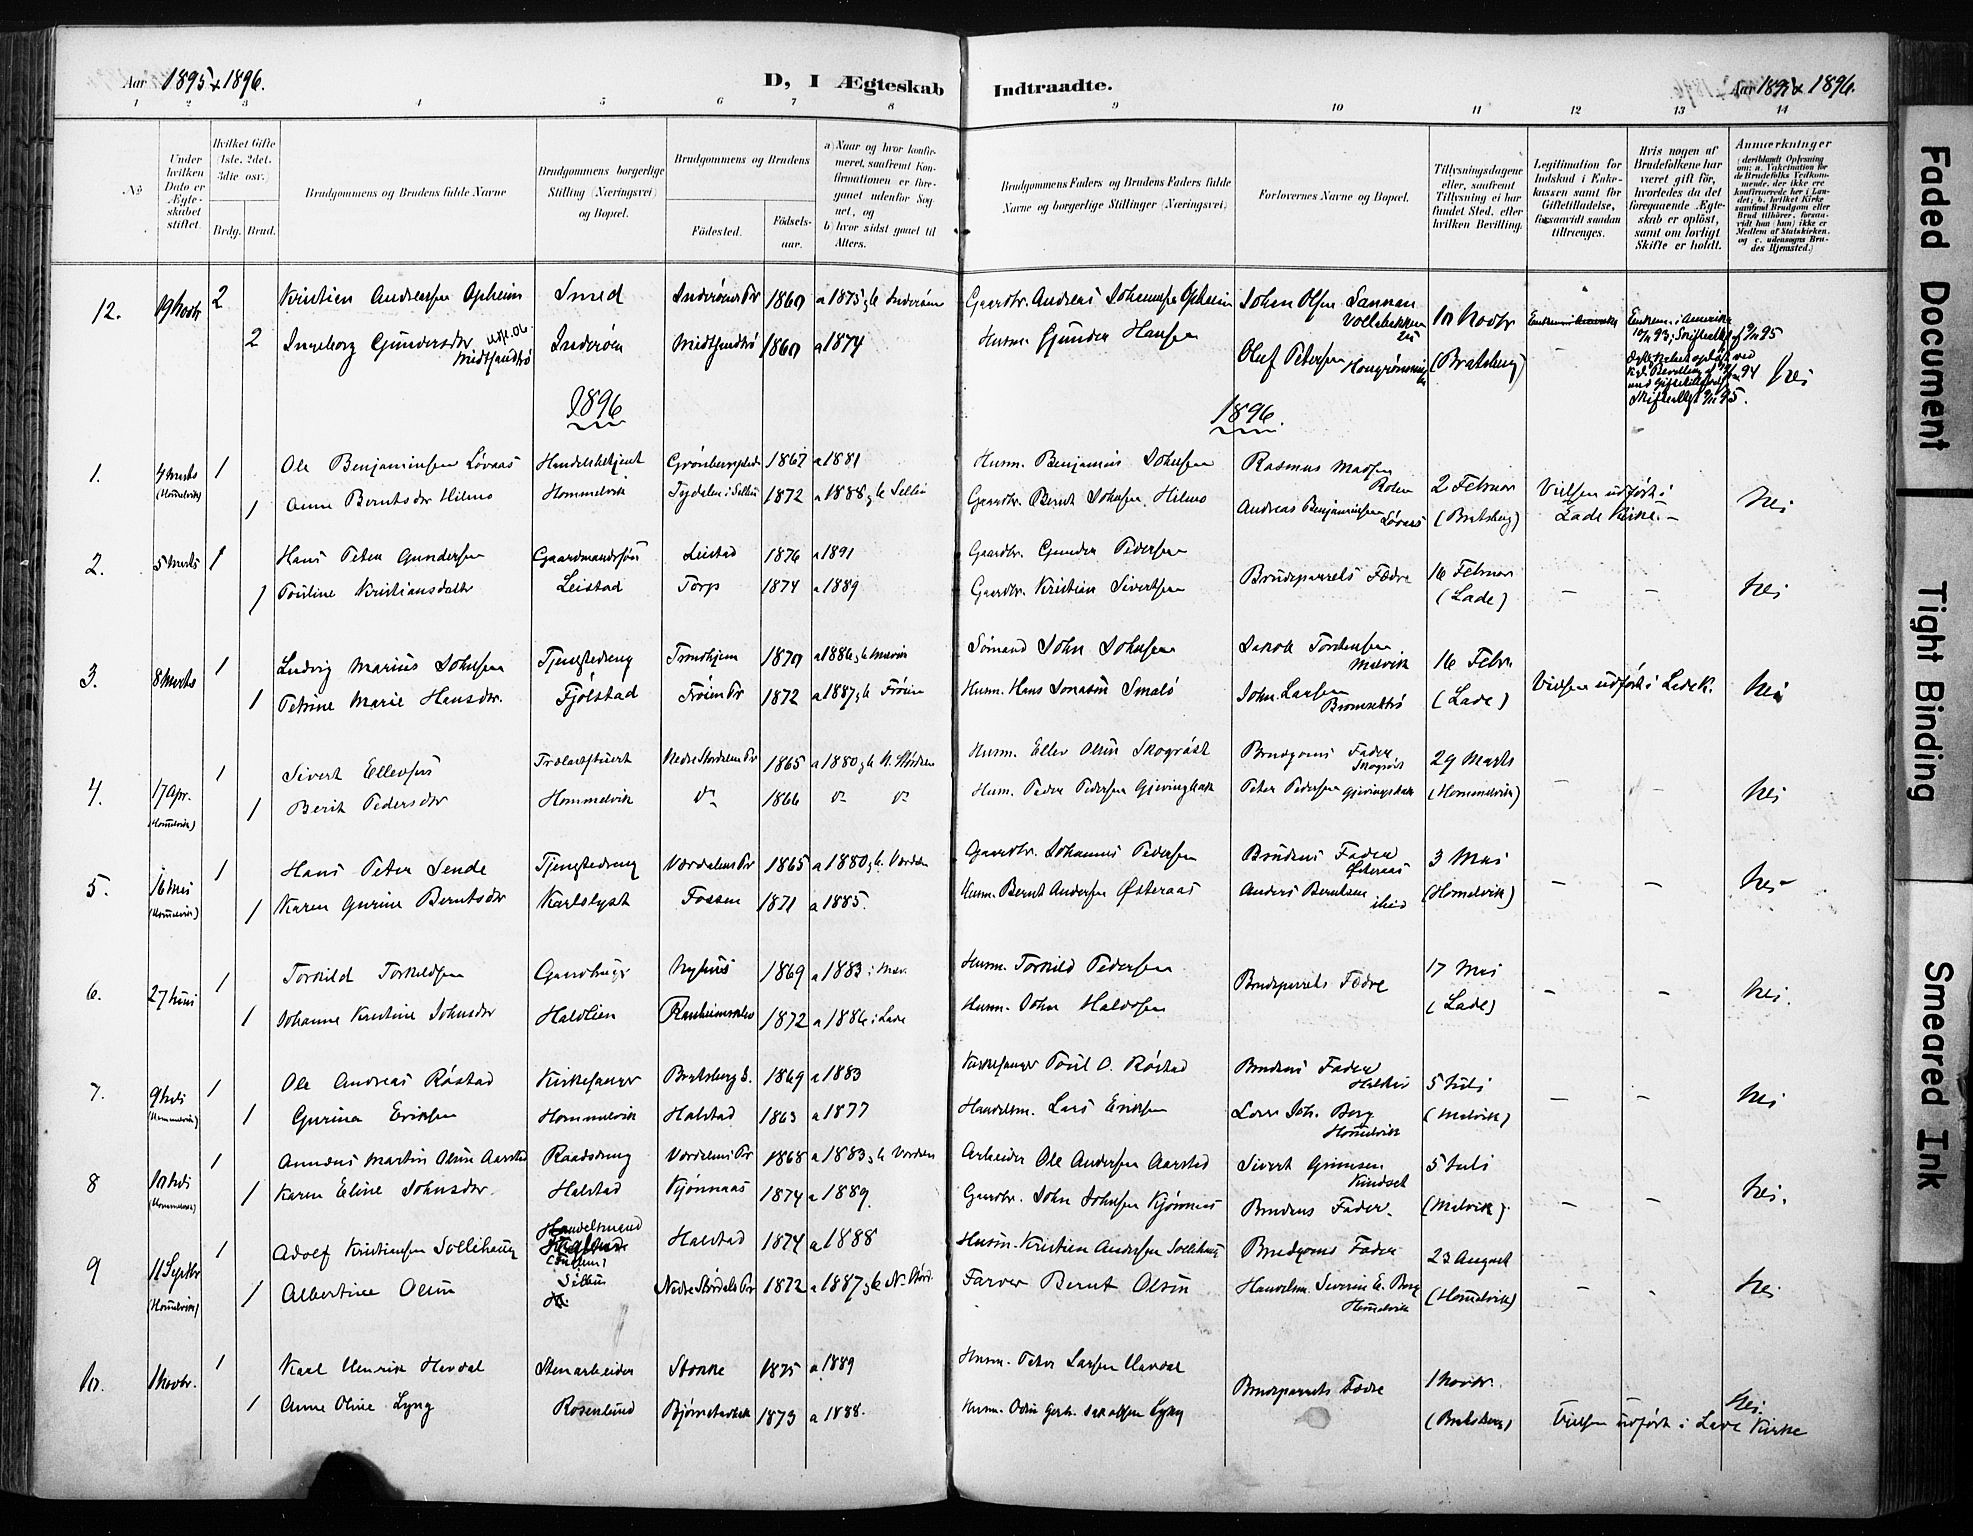 Aar 1895 & 1896.
D, I Ægteskab Indtraadte.
Aar 1895 & 1896.
1 2 3 4 5 6 7 8 9 10 11 12 13 14
No
Under hvilken Dato er Ægteskabet stiftet.
Hvilket Gifte (1ste. 2det. 3die osv.)
Brdg. Brud.
Brudgommens og Brudens fulde Navne
Brudgommens borgerlige Stilling (Næringsvei) og Bopæl.
Brudgommens og Brudens
Fødested. Fødselsaar.
a) Naar og hvor konfirmeret, saafremt Konfirmationen er foregaaet udenfor Sognet, og
b) hvor sidst gaaet til Alters.
Brudgommens Faders og Brudens Faders fulde Navne og borgerlige Stillinger (Næringsvei)
Forlovernes Navne og Bopæl.
Tillysningsdagene eller, saafremt Tillysning ei har fundet Sted, efter hvilken Bevilling.
Legitimation for Indskud i Enkekassen samt for Giftetilladelse, forsaavidt saadan tiltrænges.
Hvis nogen af Brudefolkene har været gift før, hvorledes da det foregaaende Ægteskab er opløst, samt om lovligt Skifte er holdt.
Anmærkninger
(deriblandt Oplysning om: a. Vakcination for de Brudefolks Vedkommende, der ikke ere konfirmerede her i Landet; b. hvilket Kirkesamfund Brudgom eller Brud tilhører, forsaavidt han (hun) ikke er Medlem af Statskirken, og c. udensogns Brudes Hjemsted.)
12. 19 Novbr 2 Kristian Andreassen Opheim Smed Inderøens Pr 1860 a 1875, b Inderøen Gaardbr. Andreas Johannesen Opheim Johan Olsen Sannan
2 Ingeborg Gundersdtr Midtsandtrø Inderøen Midtsandtrø 1860 a 1874 Husm. Gunder Hansen Oluf Petersen (Bratsberg) Nei
1896 1896.
1. 4 Marts 1 Ole Benjaminsen Løvaas Handelsbetjent 1867 a 1881 Husm. Benjamin Johnsen Rasmus Madsen
(Hommelvik) 1 Anne Berntsdtr Hilmo Hommelvik Tydalen i Selbu 1872 a 1888, b Selbu Gaardbr. Bernt Johnsen Hilmo Andreas Benjaminsen Løvaas 2 Februar (Bratsberg) Vielsen udført i Lade Kirke. Nei
2. 5 Marts 1 Hans Peter Gundersen Gaardmandssøn Leistad 1876 a 1891 Gaardbr. Gunder Pedersen
1 Pauline Kristiansdatter Leistad Torp 1874 a 1889 Gaardbr. Kristian Sivertsen Brudeparrets Fædre 16 Februar (Lade) — — Nei
3. 8 Marts 1 Ludvig Marius Johnsen Tjenestedreng Trondhjem 1870 a 1886, b Malvik Sømand John Johnsen Jakob Torstensen Malvik 16 Febr
1 Petrine Marie Hansdtr. Fjølstad Frøien Pr 1872 a 1887, b Frøien Husm. Hans Jonasen Smalø John Larsen (Lade) Vielsen udført i Lade K. Nei
4. 17 Apr. 1 Sivert Ellevsen Nedre Stjørdalen Pr 1865 a 1880, b N. Stjørdalen Husm. Ellev Olsen Skogrøst Brudgoms Fader Skogrøst 29 Marts
(Hommelvik) 1 Berit Pedersdtr Hommelvik do 1866 do do Husm. Peder Pedersen Gjevingbak Peter Pedersen Gjevingsbak (Hommelvik) — — Nei
5. 16 Mai 1 Hans Peter Sende Tjenestedreng Værdalens Pr 1865 a 1880, b. Værdalen Gaardbr. Johannes Pedersen Brudens Fader Østeraas 3 Mai
(Hommelvik) 1 Karen Gurine Berntsdtr Karlslyst Fossen 1871 a 1885. Husm. Bernt Andersen Østeraas Anders Berntsen ibid (Hommelvik) — — Nei
6. 27 Juni 1 Torkild Torkildsen Nyhus 1869 a 1883 i Malv. Husm. Torkild Pedersen Brudeparrets Fædre 17 Mai
1 Johanne Kristine Johnsdtr Haldlien 1872 a 1886 i Lade Husm. John Haldosen (Lade) — — Nei.
7. 9 Juli 1 Ole Andreas Røstad Kirkesanger Bratsberg S. 1869 a 1883 Kirkesanger Poul O. Røstad Brudens Fader Halstad 5 Juli
(Hommelvik) 1 Gurina Eriksen Hommelvik Halstad 1863 a 1877 Handelsm. Lars Eriksen Lars Joh. Berg Hommelvik (Malvik) — — Nei
8 10 Juli 1 Amandus Martin Olsen Aarstad Raadsdreng Værdalens Pr 1868 a 1883, b Værdalen Arbeider Ole Andersen Aarstad Sivert Grimsen Kindset 5 Juli
(Hommelvik) 1 Karen Eline Johnsdtr. Halstad Kjønnaas 1874 a 1889. Gaardbr. John Johnsen Kjønnaas Brudens Fader. (Malvik) — — Nei.
9 11 Septbr 1 Adolf Kristiansen Sollihaug Handelsmand Halstad 1874 a 1888 Husm. Kristian Andersen Sollihaug Brudgoms Fader 23 August
(Hommelvik) 1 Albertine Olsen Selbu Nedre Stjørdals Pr 1872 a 1887, b N. Stjørd. Farver Bernt Olsen Handelsm. Severin E. Berg Hommelvik (Hommelvik) — - Nei
10. 1 Novbr. 1 Karl Henrik Havdal Stenarbeider Stokke 1875 a 1889 Husm. Peter Larsen Havdal Brudeparrets Fædre 1 Novbr.
1 Anne Oline Lyng Rosenlund Bjørnstadbak 1873 a 1888. (Bratsberg) Vielsen udført i Lade Kirke Nei.
Faded Document
Tight Binding
Smeared Ink